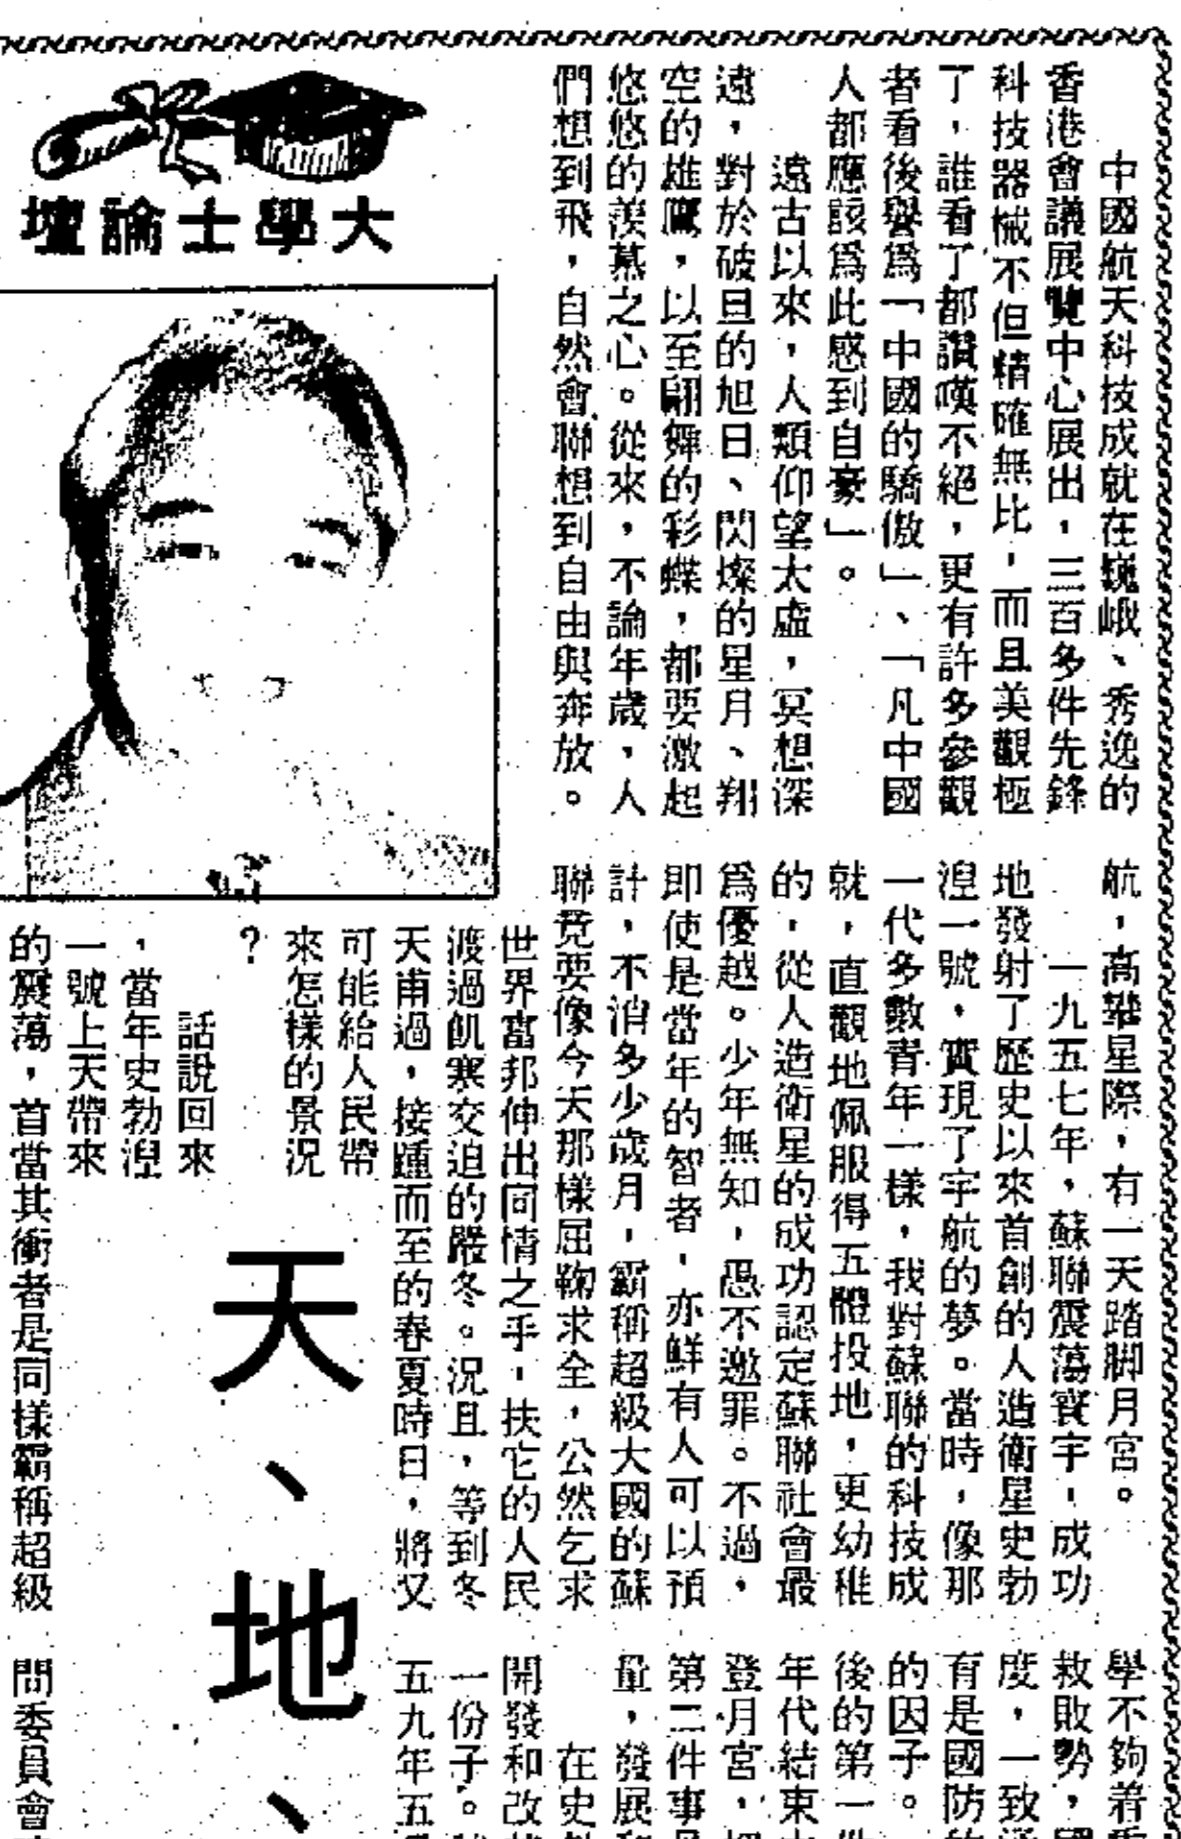 大學士論壇
天、地、
中國航天科技成就在巍峨、秀逸的
香港會議展覽中心展出，三百多件先鋒
科技器械不但精確無比，而且美觀極
了，誰看了都讚嘆不絕，更有許多參觀
者看後譽爲「中國的驕傲」、「凡中國
人都應該爲此感到自豪」。
遠古以來，人類仰望太虛，冥想深
遠，對於破旦的旭日、閃燦的星月、翔
空的雄鷹，以至翩舞的彩蝶，都要激起
悠悠的羨慕之心。從來，不論年歲，人
們想到飛，自然會聯想到自由與奔放。
航，高攀星際，有一天踏脚月宮。
一九五七年，蘇聯震蕩寰宇，成功
地發射了歷史以來首創的人造衛星史勃
湼一號，實現了宇航的夢。當時，像那
一代多數青年一樣，我對蘇聯的科技成
就，直觀地佩服得五體投地，更幼稚
的，從人造衛星的成功認定蘇聯社會最
爲優越。少年無知，愚不邀罪。不過，
即使是當年的智者，亦鮮有人可以預
計，不消多少歲月，霸稱超級大國的蘇
聯竟要像今天那樣屈鞠求全，公然乞求
世界富邦伸出同情之手，扶它的人民
渡過飢寒交迫的嚴冬。況且，等到冬
天甫過，接踵而至的春夏時日，將又
可能給人民帶
來怎樣的景況
？
話說回來
，當年史勃湼
一號上天帶來
的震蕩，首當其衝者是同樣霸稱超級
學不夠着
救敗勢，
度，一致
有是國防
的因子。
後的第一
年代結束
登月宮，
第二件事
量，發展
在史
開發和改
一份子。
五九年五
問委員會